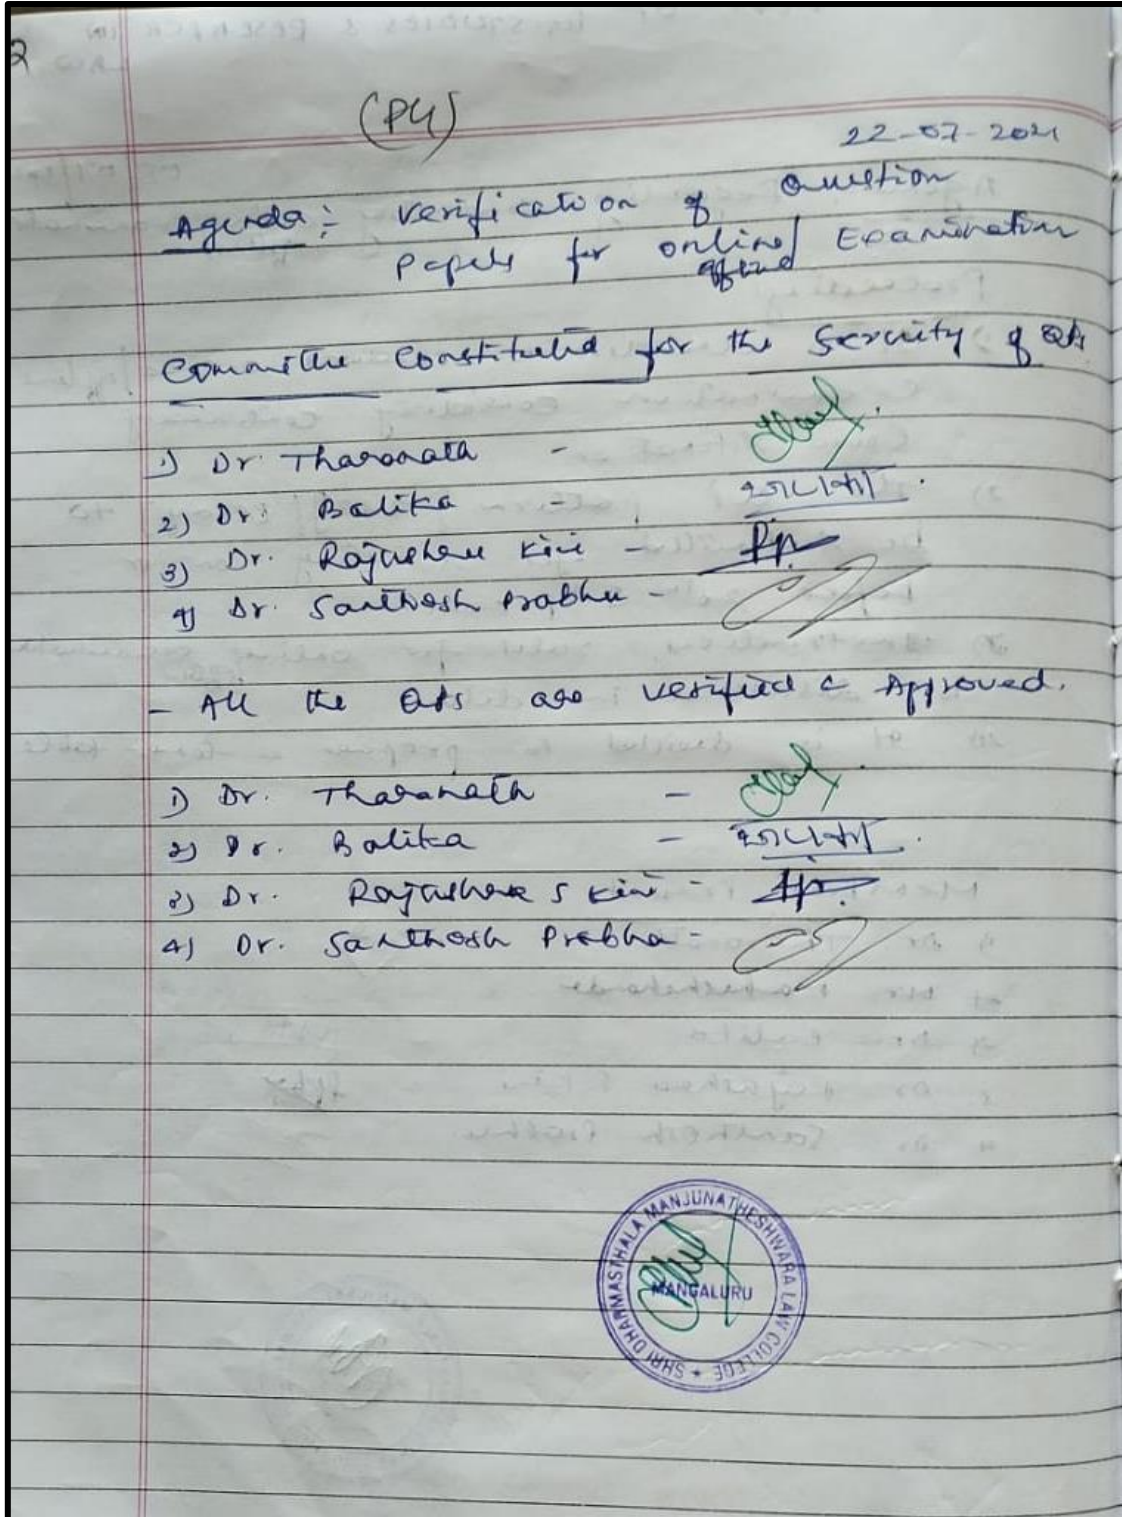 2
(P4)
22-07-2021
Agenda:- Verification of Question
Papers for online/ Examination
offline
Committee Constituted for the Scrunity of QPs
1) Dr. Tharanath -
2) Dr. Balika -
3) Dr. Rajashree Kini -
4) Dr. Santhosh Prabhu -
- All the QPs are verified & Approved.
1) Dr. Tharanath -
2) Dr. Balika -
3) Dr. Rajashree S Kini -
4) Dr. Santhosh Prabhu -
SHRI DHARMASTHALA MANJUNATHESHWARA LAW COLLEGE
MANGALURU